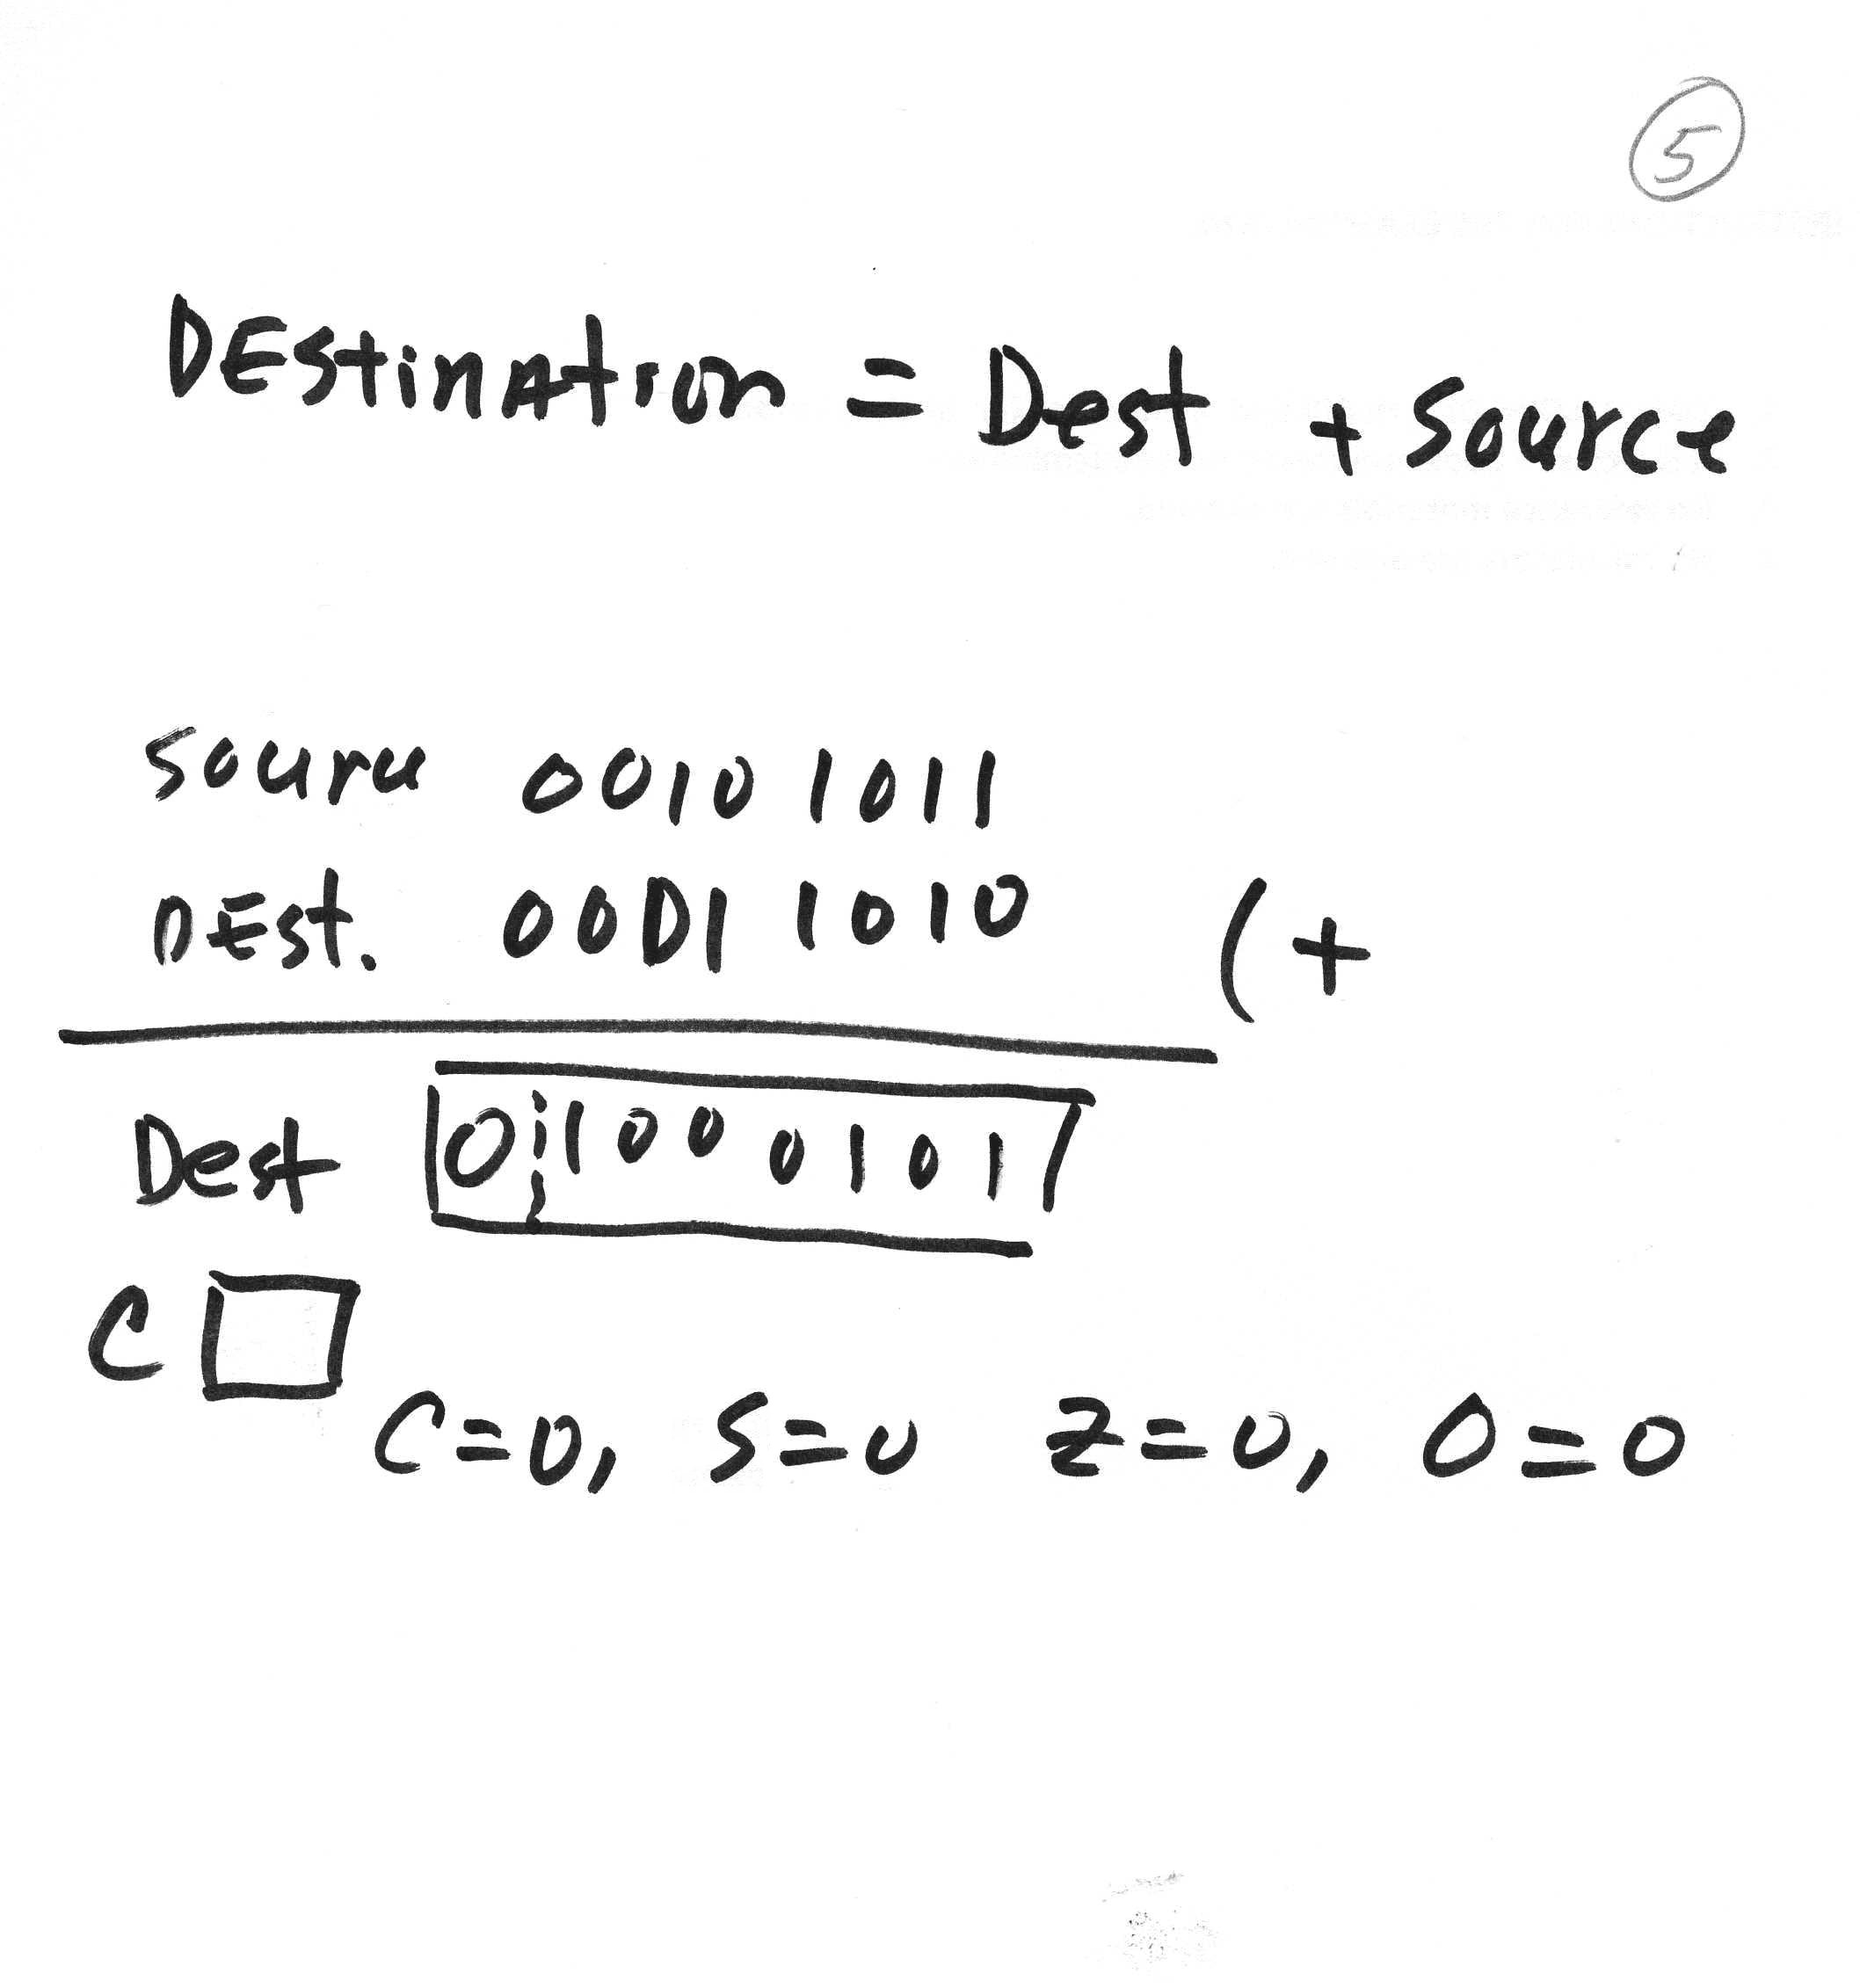 5
DEstinAtion = Dest + Source
source 0010 1011
DEst. 0001 1010 (+
Dest 01000101
C
C=0, S=0 Z=0, O=0